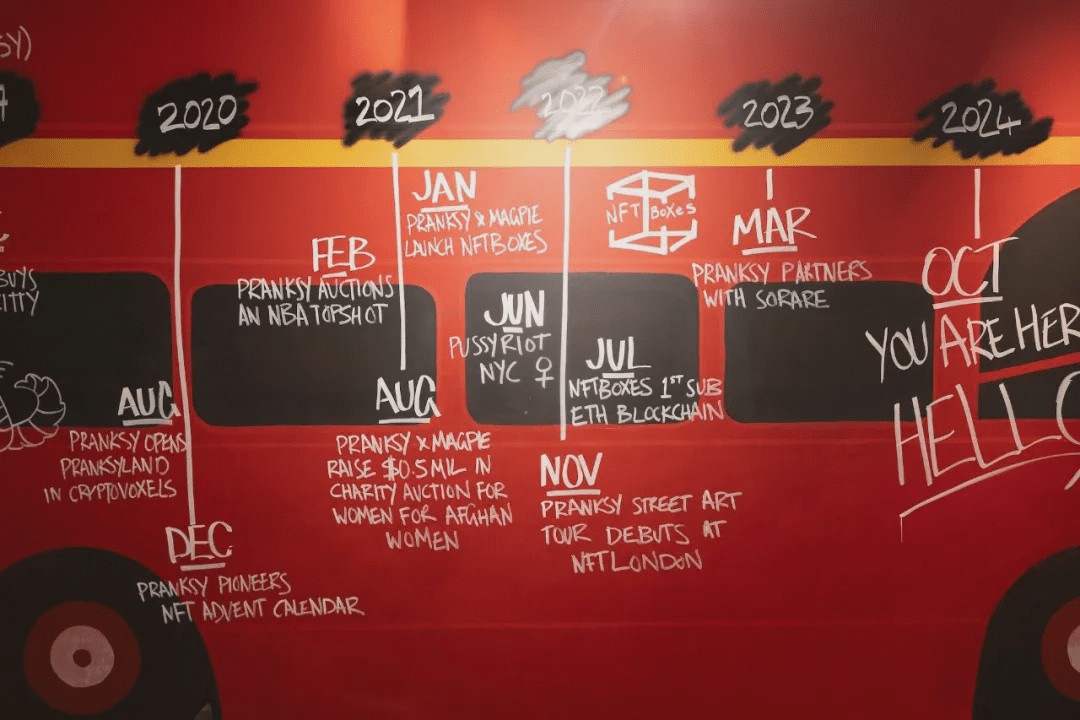 SY)
7
2020
2021
2022
2023
2024
BUYS
ITTY
AUG
PRANKSY OPENS
PRANKSYLAND
IN CRYPTOVOXELS
DEC
PRANKSY PIONEERS
NFT ADVENT CALENDAR
FEB
PRANKSY AUCTIONS
AN NBA TOPSHOT
JAN
PRANKSY X MAGPIE
LAUNCH NFTBOXES
AUG
PRANKSY X MAGPIE
RAISE $0.5MIL IN
CHARITY AUCTION FOR
WOMEN FOR AFGHAN
WOMEN
JUN
PUSSYRIOT
NYC ♀
NFT BOXES
JUL
NFTBOXES 1ST SUB
ETH BLOCKCHAIN
NOV
PRANKSY STREET ART
TOUR DEBUTS AT
NFTLONDON
MAR
PRANKSY PARTNERS
WITH SORARE
OCT
YOU ARE HER
HELLO